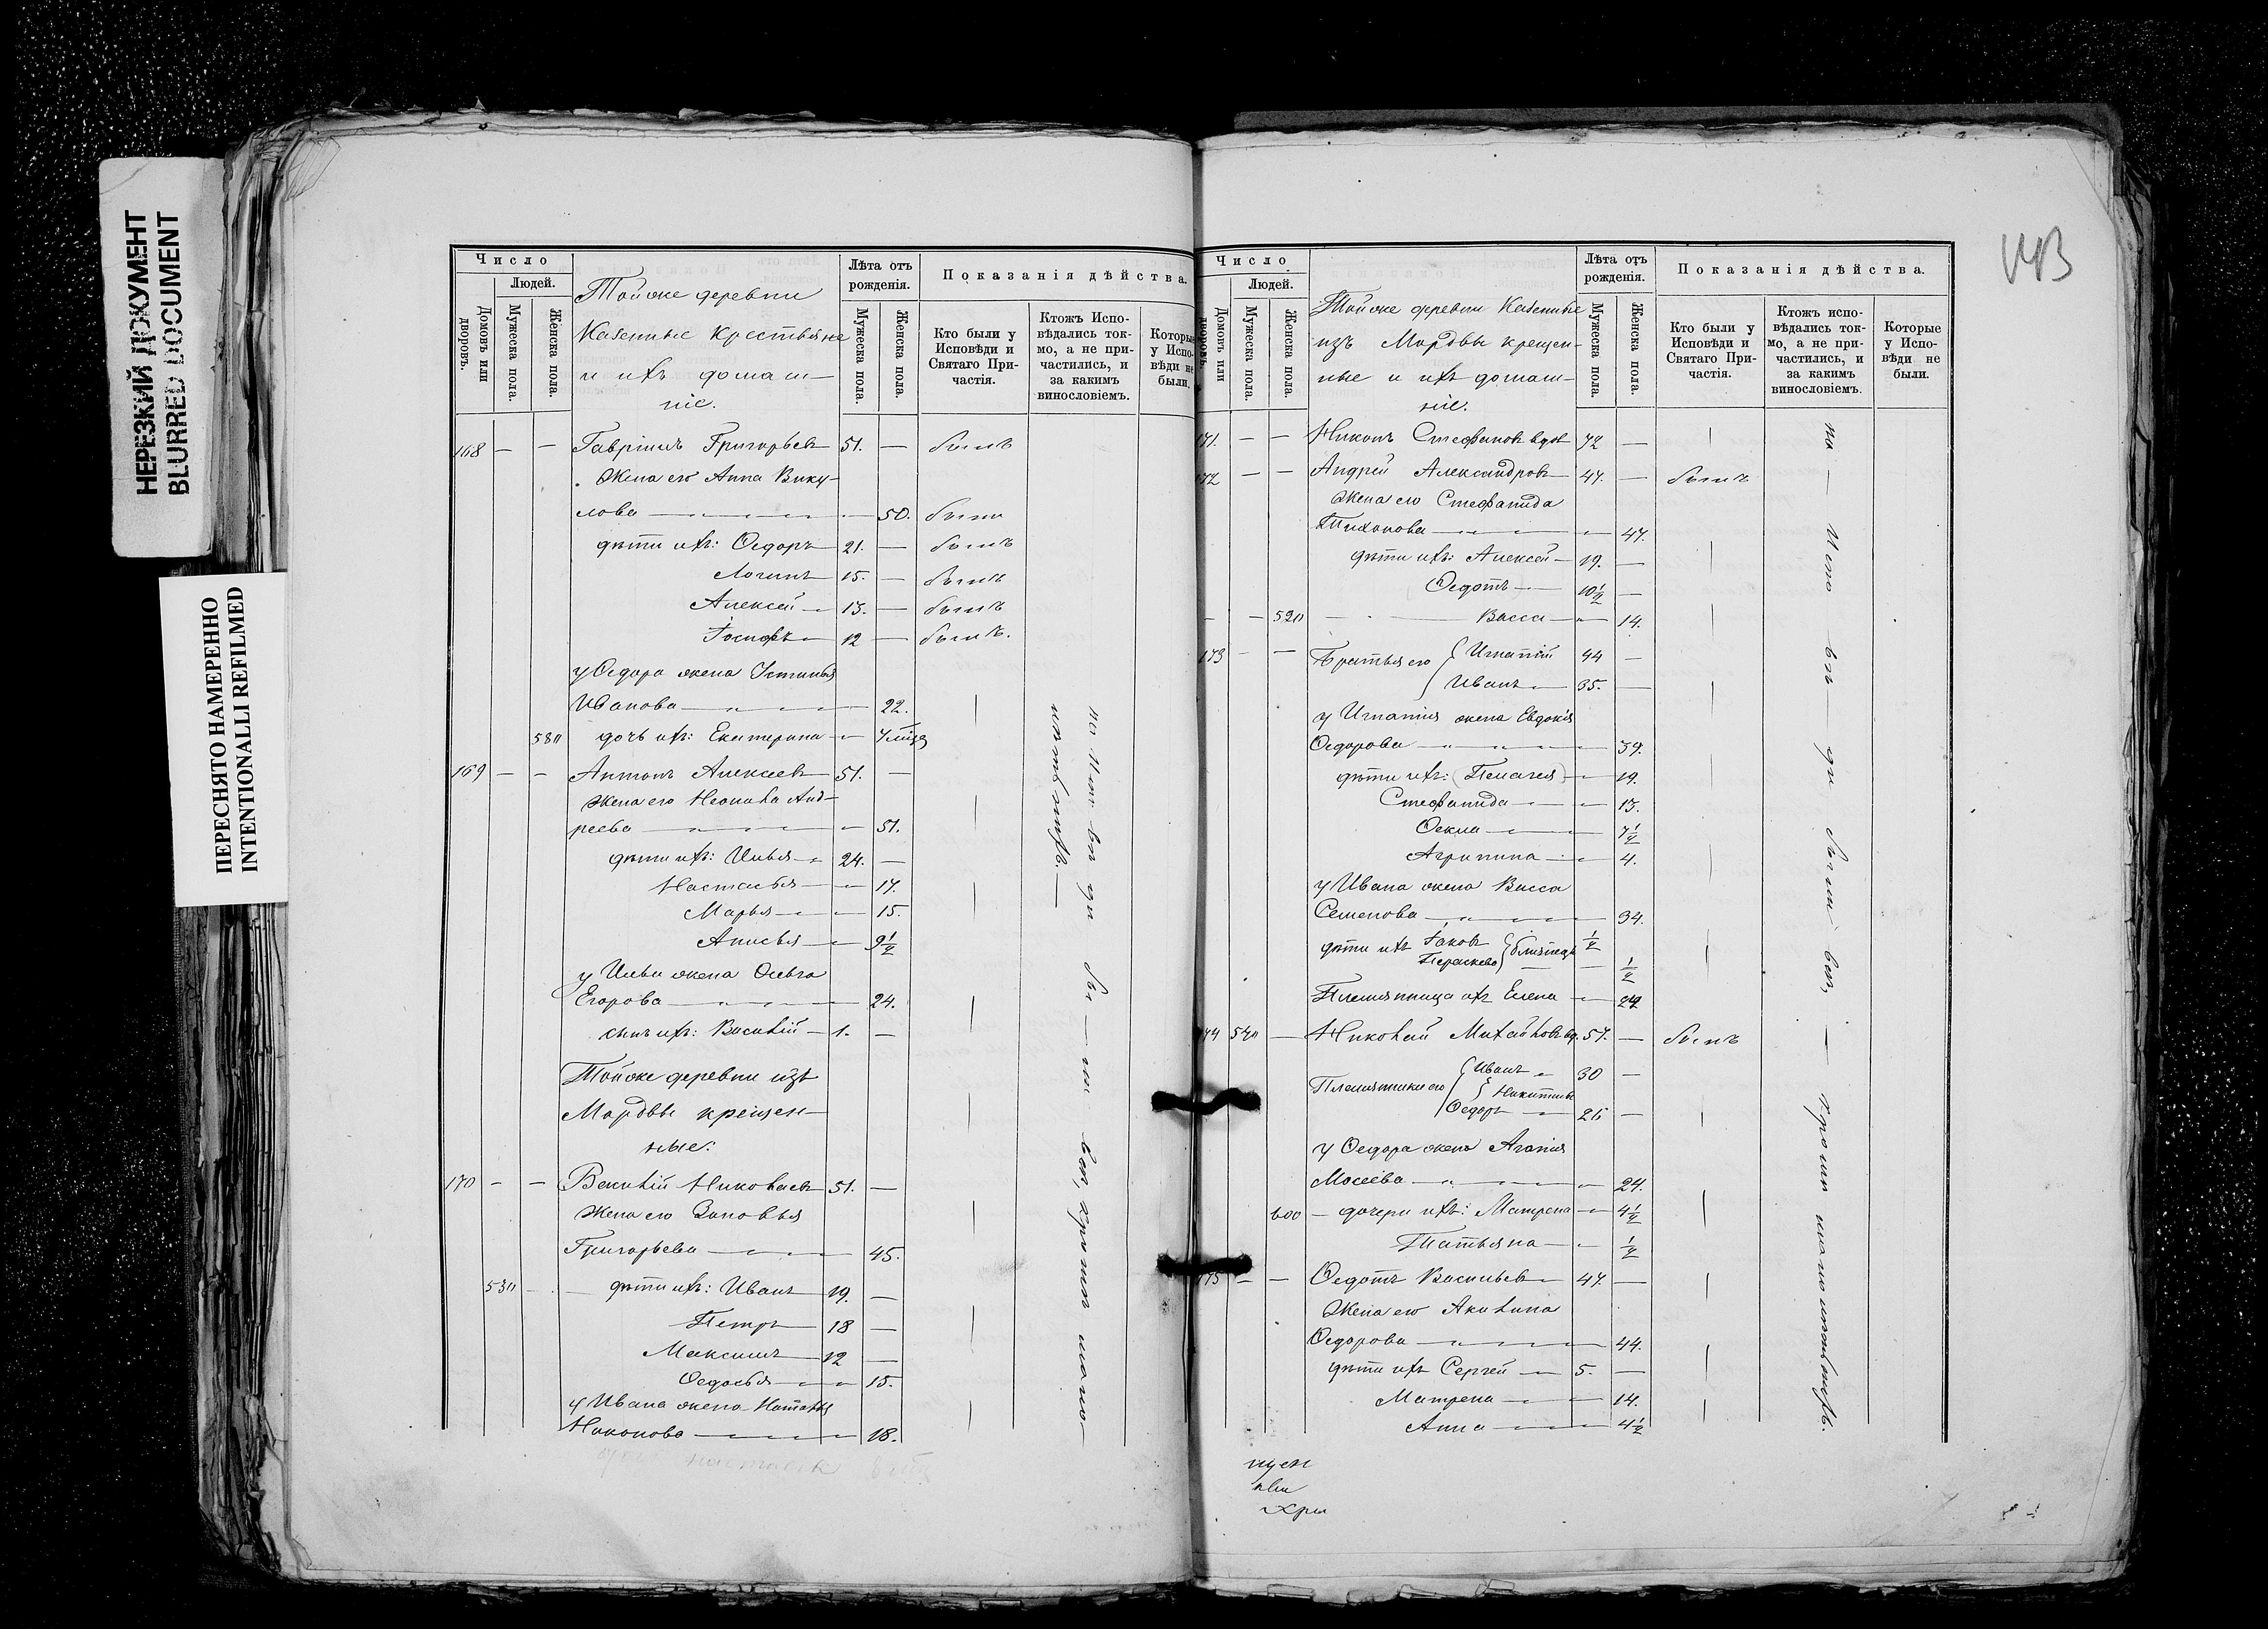 НЕРЕЗКИЙ ДОКУМЕНТ
BLURRED DOCUMENT
ПЕРЕСНЯТО НАМЕРЕННО
INTENTIONALLI REFILMED
Число
Людей.
Домовъ или дворовъ.
Мужеска пола.
Женска пола.
Тойже деревни
Казенные крестьяне
и ихъ домаш-
ніе.
Лѣта отъ рожденія.
Мужеска пола.
Женска пола.
Показанія дѣйства.
Кто были у Исповѣди и Святаго Причастія.
Ктожъ Исповѣдались токмо, а не причастились, и за какимъ винословіемъ.
Которые у Исповѣди не были.
168 — — Гавріилъ Григорьевъ 51. — былъ
Жена его Анна Вику-
лова — 50. была
дѣти ихъ: Ѳедоръ 21. — былъ
Логинъ 15. — былъ
Алексѣй 13. — былъ
Іосифъ 12 — былъ.
у Ѳедора жена Устинья
Иванова — 22.
580 дочь ихъ: Екатерина
169 — — Антонъ Алексѣевъ 51. —
Жена его Неонила Анд-
реева — 51.
дѣти ихъ: Илья 24. —
Настасья — 17.
Марья — 15.
Анисья — 9½
у Ильи жена Ольга
Егорова — 24.
сынъ ихъ: Василій 1. —
Тойже деревни изъ
Мордвы крещен-
ные:
170 — — Василій Николаевъ 51. —
Жена его Зиновья
Григорьева — 45.
530 — дѣти ихъ: Иванъ 19. —
Петръ 18 —
Максимъ 12 —
Ѳедосья — 15.
у Ивана жена Наталья
Никонова — 18.
Число
Людей.
Домовъ или дворовъ.
Мужеска пола.
Женска пола.
Тойже деревни Казенные
изъ Мордвы крещен-
ные и ихъ домаш-
ніе.
Лѣта отъ рожденія.
Мужеска пола.
Женска пола.
Показанія дѣйства.
Кто были у Исповѣди и Святаго Причастія.
Ктожъ исповѣдались токмо, а не причастились, и за какимъ винословіемъ.
Которые у Исповѣди не были.
171. — — Никонъ Стефановъ вдов 72 —
172 — — Андрей Александровъ 47. — былъ
Жена его Стефанида
Тихонова — 47.
дѣти ихъ: Алексѣй 19. —
Ѳедотъ 10½ —
— — 520 Васса — 14.
173 — — Братья его Игнатій 44 —
Иванъ 35. —
у Игнатія жена Евдокія
Ѳедорова — 39.
дѣти ихъ: (Пелагея) — 19.
Стефанида — 13.
Ѳекла — 7½
Агрипина — 4.
у Ивана жена Васса
Семенова — 34.
дѣти ихъ Іаковъ близнецы ½
Параскева — ½
Племянница ихъ Елена — 22
174 540 — Николай Михайловъ вд. 57. — былъ
Племянники его Иванъ 30 —
Никитины
Ѳедоръ 25 —
у Ѳедора жена Агапія
Мосеева — 24.
600 — дочери ихъ: Матрена — 4½
Татьяна — ½
175 — — Ѳедотъ Васильевъ 47. —
Жена его Акилина
Ѳедорова — 44.
дѣти ихъ Сергѣй 5. —
Матрена — 14.
Анна — 4½